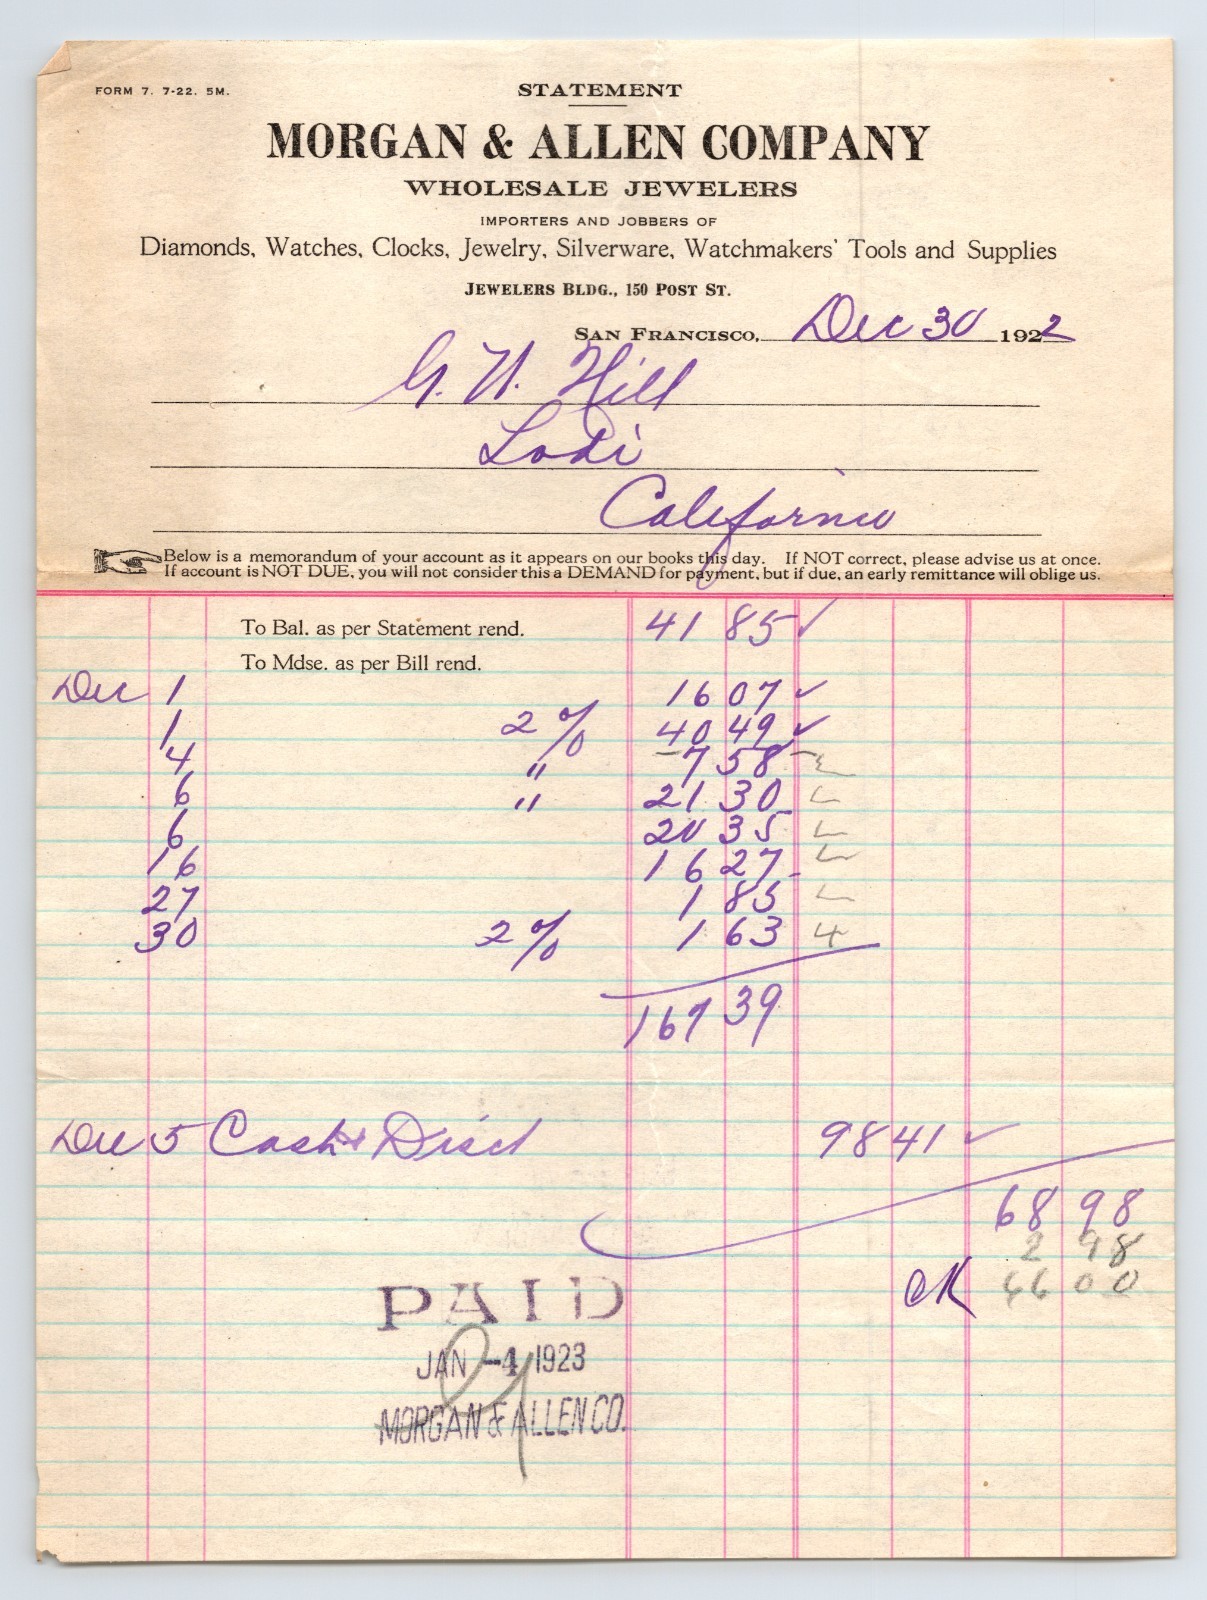 FORM 7. 7-22. 5M.
STATEMENT
MORGAN & ALLEN COMPANY
WHOLESALE JEWELERS
IMPORTERS AND JOBBERS OF
Diamonds, Watches, Clocks, Jewelry, Silverware, Watchmakers' Tools and Supplies
JEWELERS BLDG., 150 POST ST.
SAN FRANCISCO, Dec 30 1922
G. W. Hill
Lodi
California
Below is a memorandum of your account as it appears on our books this day. If NOT correct, please advise us at once.
If account is NOT DUE, you will not consider this a DEMAND for payment, but if due, an early remittance will oblige us.
To Bal. as per Statement rend. 41 85 ✓
To Mdse. as per Bill rend.
Dec 1 16 07 ✓
1 2% 40 49 ✓
4 " 7 58
6 " 21 30
6 20 35
16 16 27
27 1 85
30 2% 1 63
167 39
Dec 5 Cash & Disct 98 41 ✓
68 98
2 98
OK 66 00
PAID
JAN -4 1923
MORGAN & ALLEN CO.